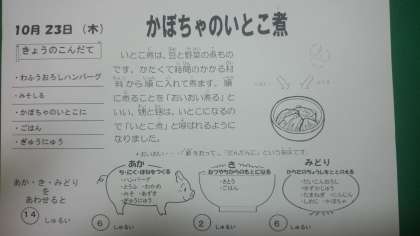 10月 23日 （木）
かぼちゃのいとこ煮
きょうのこんだて
・わふうおろしハンバーグ
・みそしる
・かぼちゃのいとこに
・ごはん
・ぎゅうにゅう
いとこ煮は、豆と野菜の煮もの
です。かたくて時間のかかる材
料から順に入れて煮ます。順
に煮ることを「おいおい煮る」と
いい、甥と甥は、いとこになるの
で「いとこ煮」と呼ばれるように
なりました。
あか・き・みどり
を
あわせると
14 しゅるい
あか
ち・にく・ほねをつくる
・ハンバーグ
・とうふ ・わかめ
・みそ ・あずき
・ぎゅうにゅう
6 しゅるい
き
ねつやちからのもとになる
・さとう
・ごはん
2 しゅるい
みどり
からだのちょうしをととのえる
・だいこんおろし
・たまねぎ ・にんじん
・しめじ ・かぼちゃ
6 しゅるい